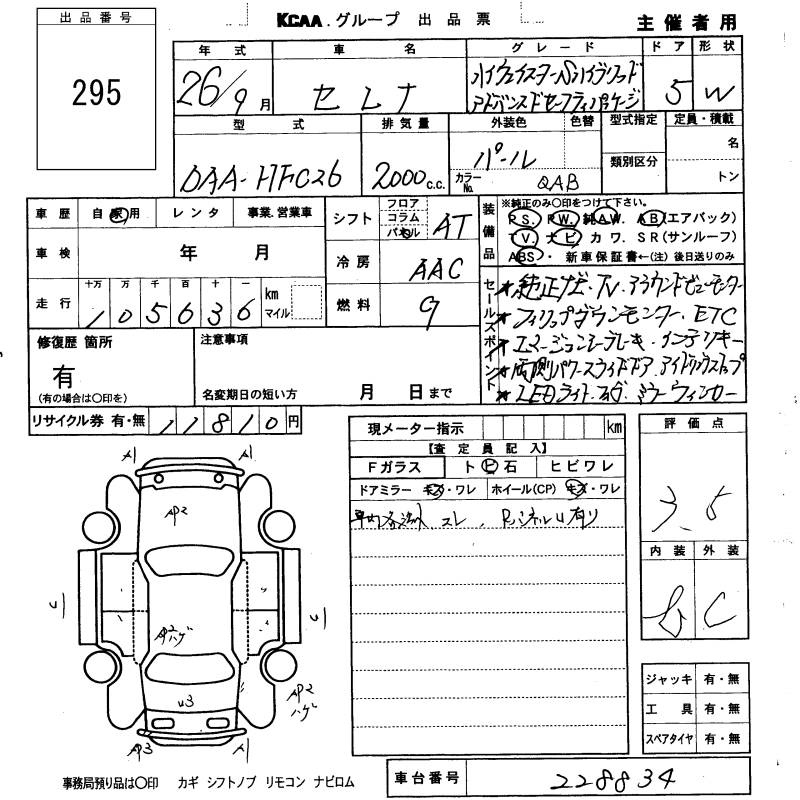 出品番号
295
KCAA.グループ 出品票
主催者用
年式 車名 グレード ドア 形状
26/9月 セレナ ハイウェイスターSハイブリッド
アドバンスドセーフティパッケージ 5 W
型式 排気量 外装色 色替 型式指定 定員・積載
DAA-HFC26 2000c.c. パール 類別区分 名
カラーNo. QAB トン
車歴 自家用 レンタ 事業.営業車
車検 年 月
走行 十万 万 千 百 十 一
105636 km マイル
シフト フロア コラム パネル AT
冷房 AAC
燃料 G
装備品 ※純正のみ〇印をつけて下さい。
PS. PW. 純AW. AB(エアバック)
TV. ナビ カワ. SR(サンルーフ)
ABS・ 新車保証書←(注) 後日送りのみ
セールスポイント
★純正ナビ・TV・アラウンドビューモニター
★フリップダウンモニター・ETC
★エマージェンシーブレーキ・インテリキー
★両側パワースライドドア・アイドリングストップ
★LEDライト・フォグ・ミラーウィンカー
修復歴 箇所
有
(有の場合は〇印を)
注意事項
名変期日の短い方 月 日まで
リサイクル券 有・無 11810円
現メーター指示 km
【査定員記入】
Fガラス ト ビ 石 ヒビワレ
ドアミラー キズ・ワレ ホイール(CP) キズ・ワレ
スレ、 有り
評価点
3.5
内装 外装
C
ジャッキ 有・無
工具 有・無
スペアタイヤ 有・無
A1 A1
AP2
U U
AP2
ハゲ
U3
AP2
ハゲ
AP3 A1
事務局預り品は〇印 カギ シフトノブ リモコン ナビロム
車台番号 228834